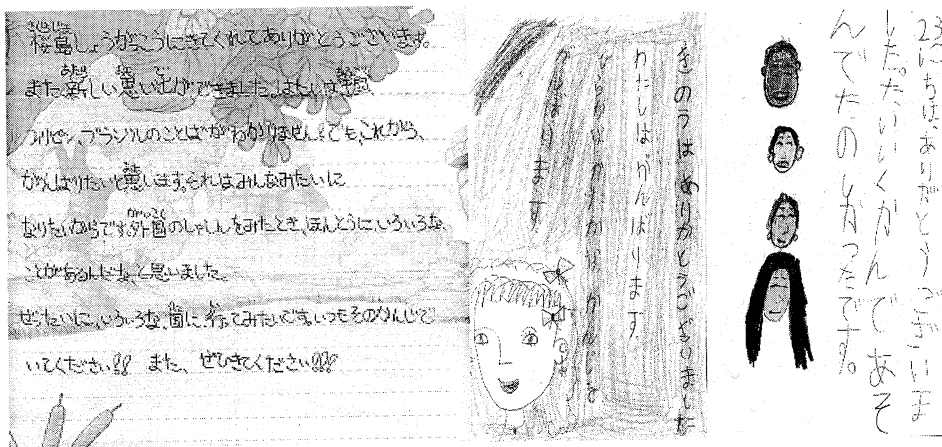 桜島しょうがっこうにきてくれてありがとうございます。
また新しい思い出ができました。わたしは中国
フリピン、ブラジルのことばがわかりません。でも、これから、
がんばりたいと思います。それはみんなみたいに
なりたいからです。外国のしゃしんをみたとき、ほんとうに、いろいろな
ことがあるんだな、と思いました。
ぜったいに、いろいろな、国に、行ってみたいです。いつもそのかんじで
いてください!! また、ぜひきてください!!!
きのうはありがとうございました
わたしはがんばります。
ひらがなのかたかなかんじを
がんばります。
23にちは、ありがとうございま
した。たいいくかんであそ
んでたのしかったです。